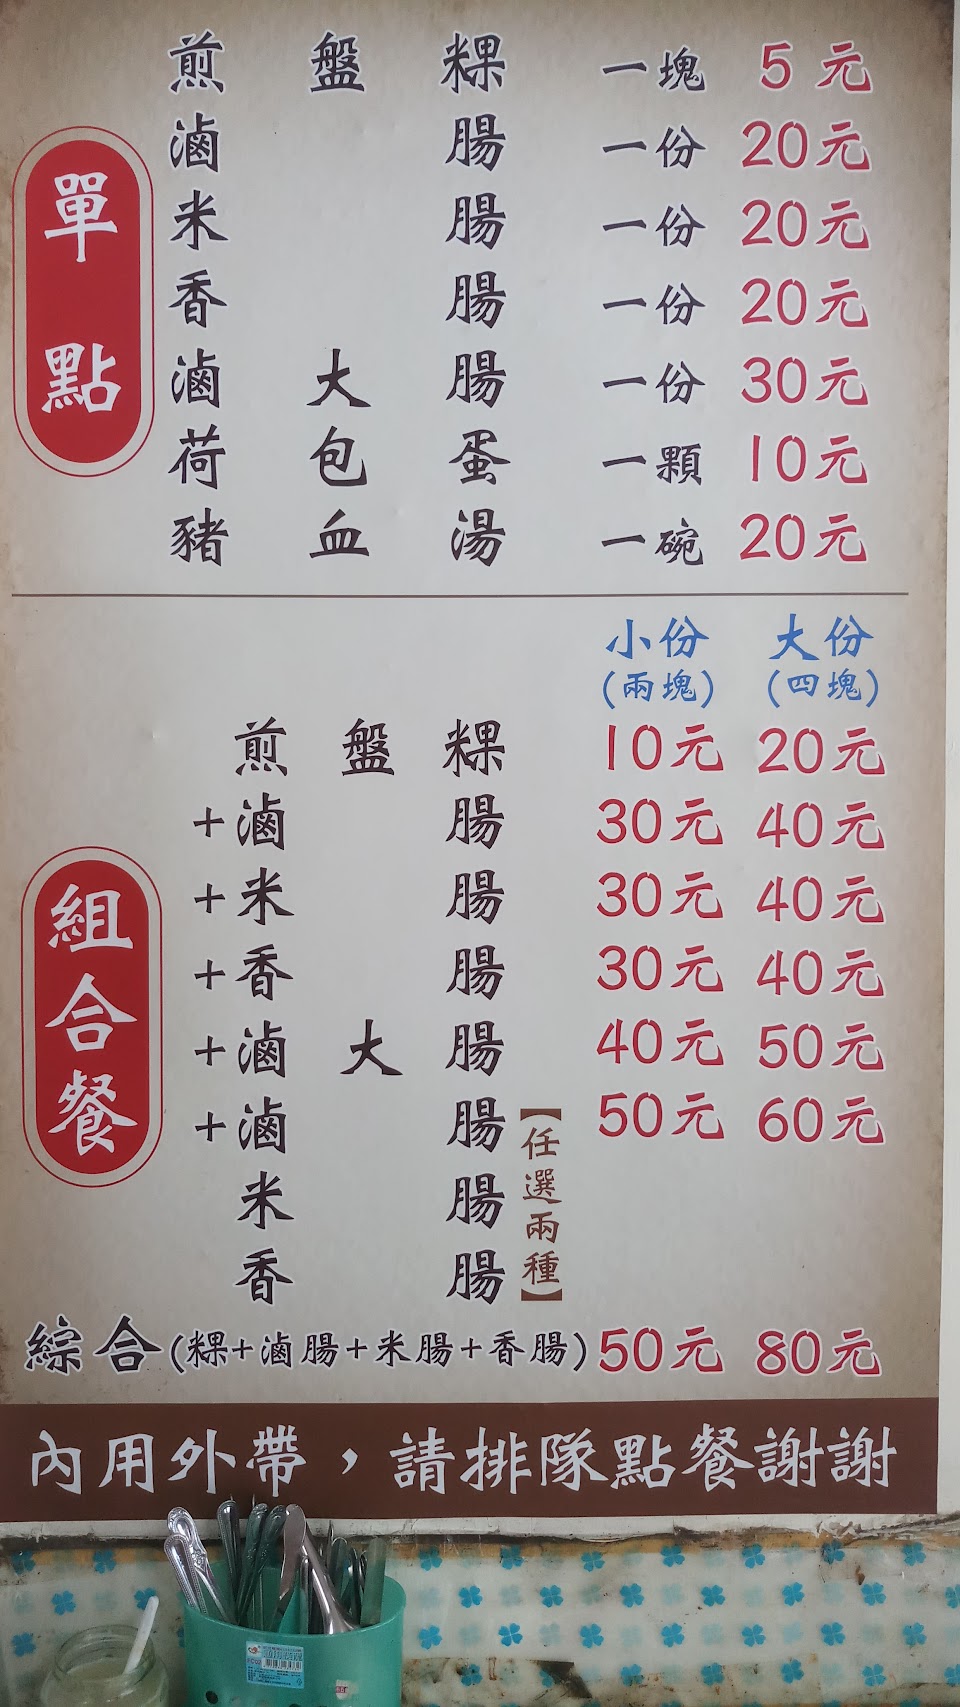 單點
煎盤粿 一塊 5元
滷腸 一份 20元
米腸 一份 20元
香腸 一份 20元
滷大腸 一份 30元
荷包蛋 一顆 10元
豬血湯 一碗 20元
小份 大份
(兩塊) (四塊)
組合餐
煎盤粿 10元 20元
+滷腸 30元 40元
+米腸 30元 40元
+香腸 30元 40元
+滷大腸 40元 50元
+滷腸 50元 60元
米腸
香腸
【任選兩種】
綜合(粿+滷腸+米腸+香腸) 50元 80元
內用外帶，請排隊點餐謝謝